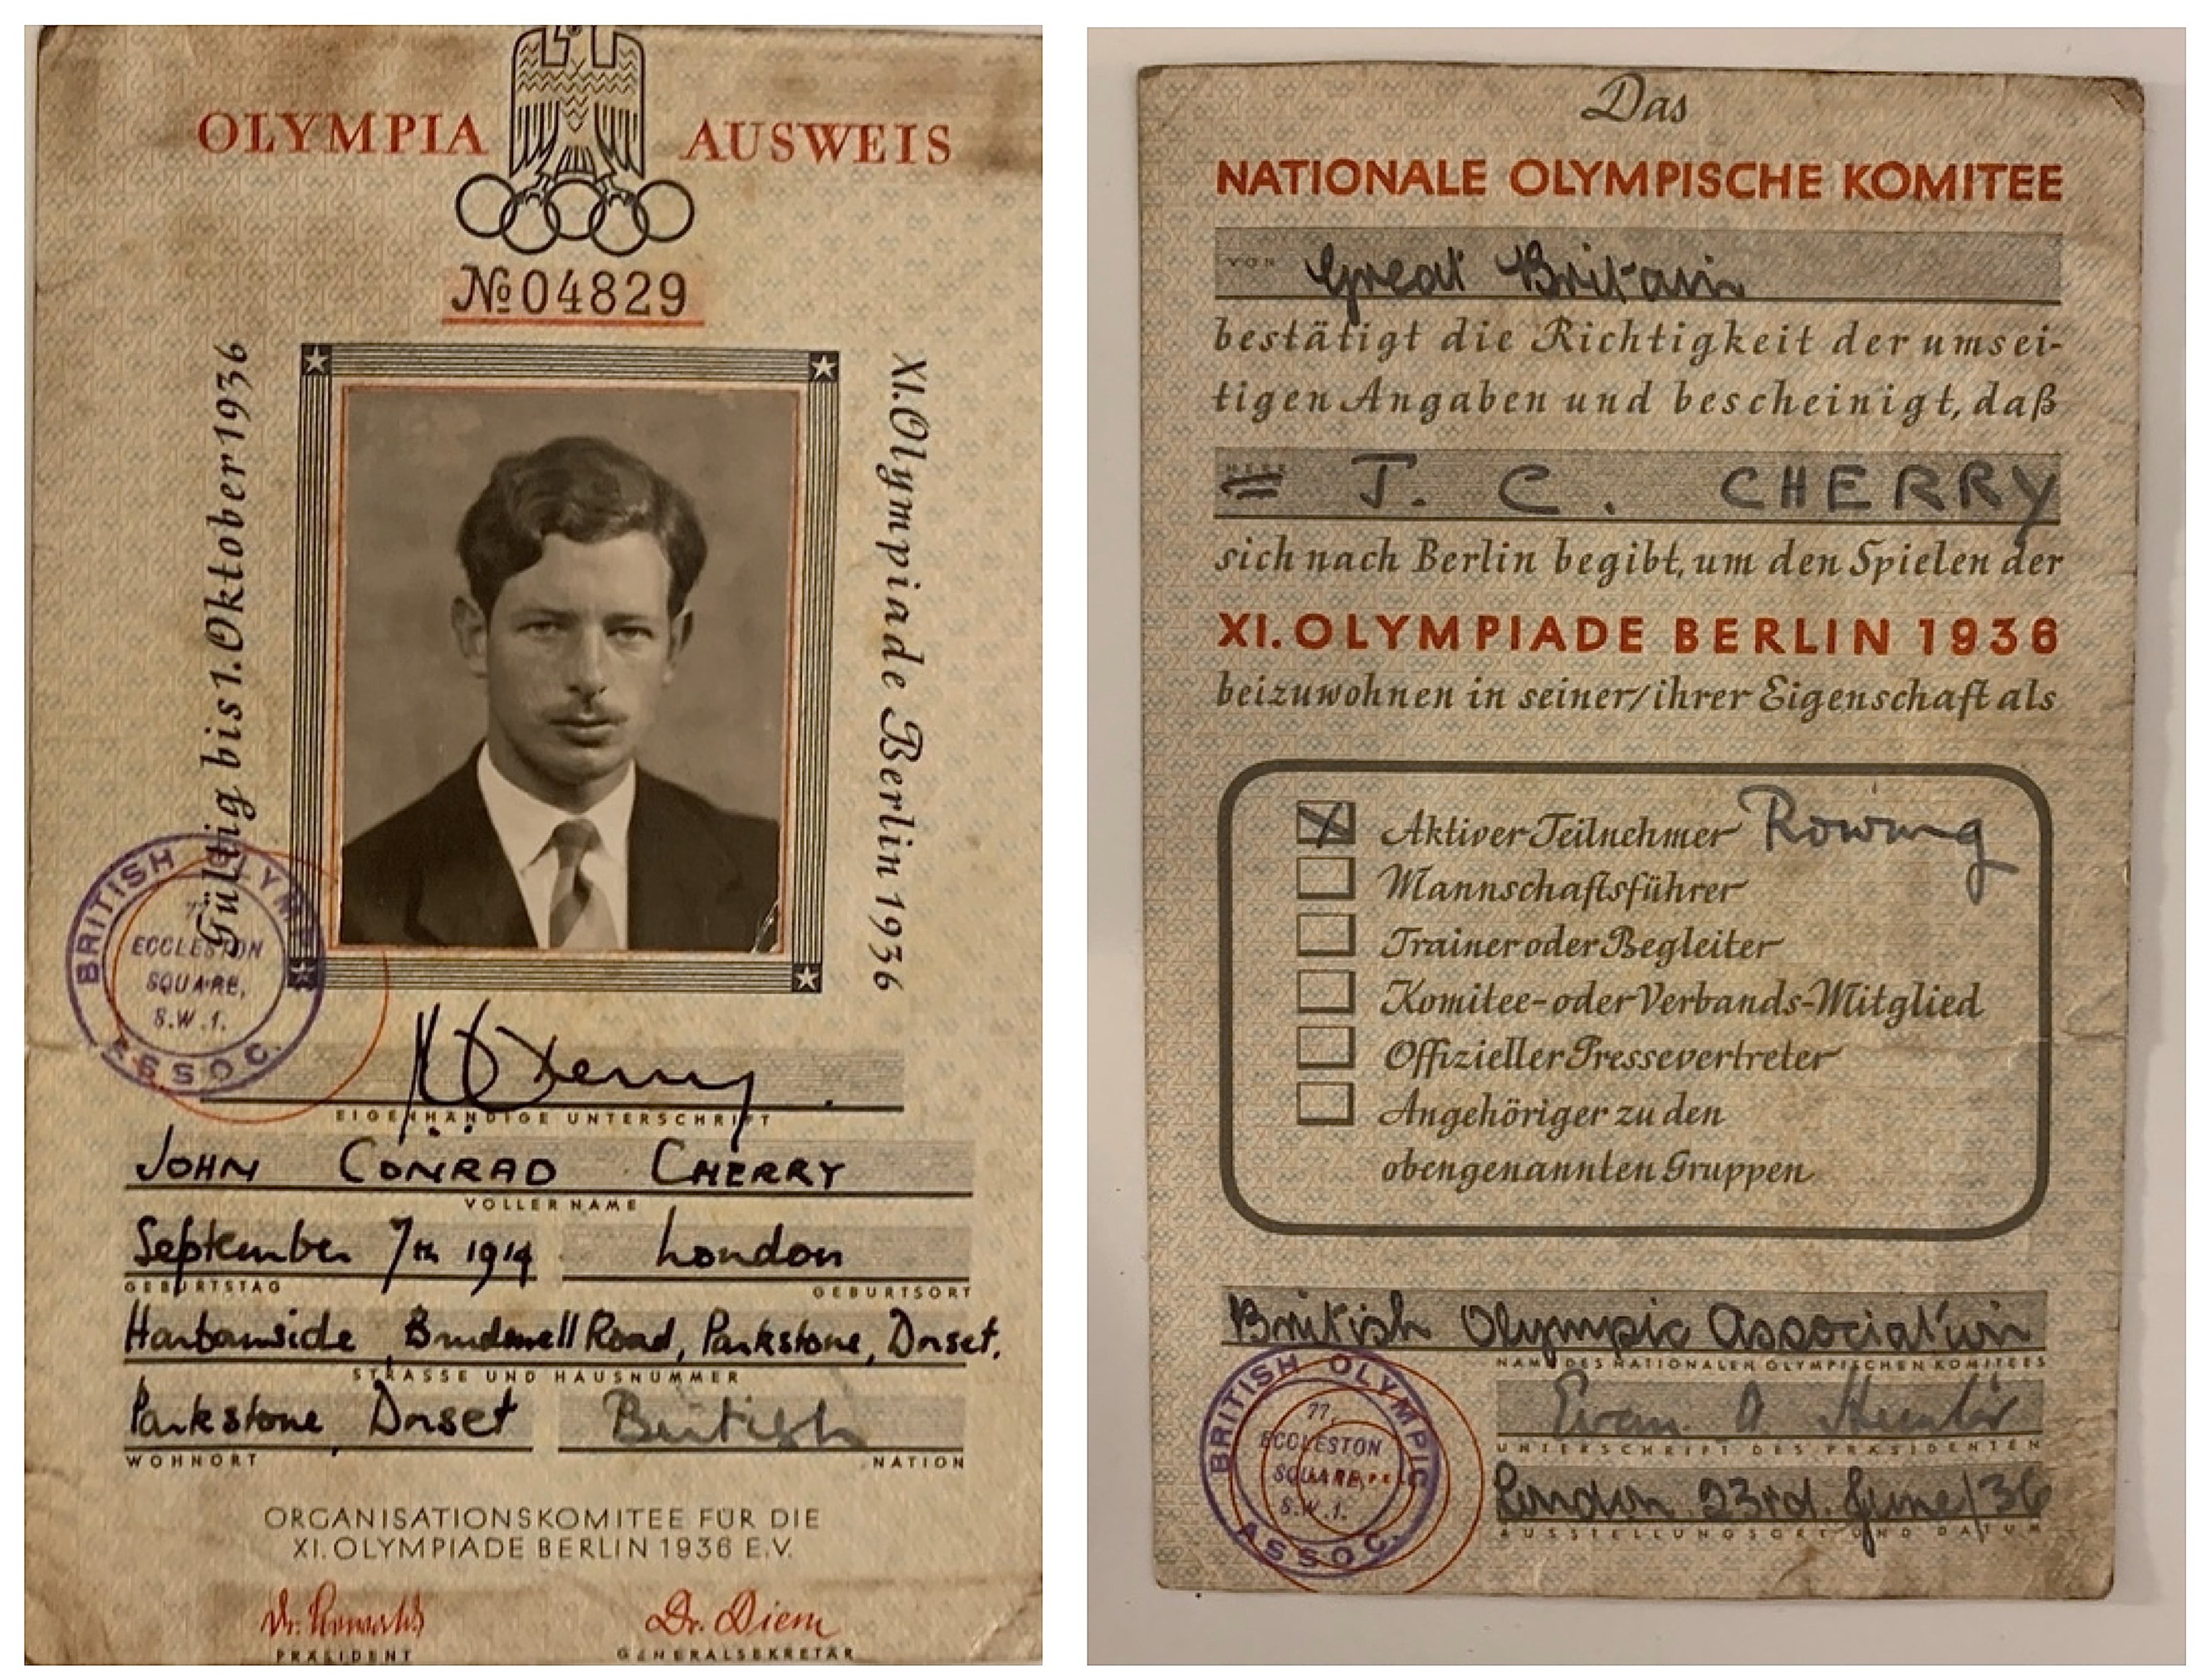 OLYMPIA AUSWEIS
№ 04829
Gültig bis 1. Oktober 1936
XI. Olympiade Berlin 1936
BRITISH OLYMPIC ASSOC.
77,
ECCLESTON
SQUARE,
S.W.1.
EIGENHÄNDIGE UNTERSCHRIFT
JOHN CONRAD CHERRY
VOLLER NAME
September 7th 1914 London
GEBURTSTAG GEBURTSORT
Harbourside, Road, Parkstone, Dorset.
STRASSE UND HAUSNUMMER
Parkstone, Dorset British
WOHNORT NATION
ORGANISATIONSKOMITEE FÜR DIE
XI. OLYMPIADE BERLIN 1936 E.V.
Dr. Dr. Diem
PRÄSIDENT GENERALSEKRETÄR
Das
NATIONALE OLYMPISCHE KOMITEE
VON Great Britain
bestätigt die Richtigkeit der umsei-
tigen Angaben und bescheinigt, daß
HERR J. C. CHERRY
sich nach Berlin begibt, um den Spielen der
XI. OLYMPIADE BERLIN 1936
beizuwohnen in seiner/ihrer Eigenschaft als
X Aktiver Teilnehmer Rowing
Mannschaftsführer
Trainer oder Begleiter
Komitee- oder Verbands-Mitglied
Offizieller Pressevertreter
Angehöriger zu den
obengenannten Gruppen
British Olympic Association
NAME DES NATIONALEN OLYMPISCHEN KOMITEES
Evan A Hunter
UNTERSCHRIFT DES PRÄSIDENTEN
London 23rd. June/36
AUSSTELLUNGSORT UND DATUM
BRITISH OLYMPIC ASSOC.
77,
ECCLESTON
SQUARE,
S.W.1.